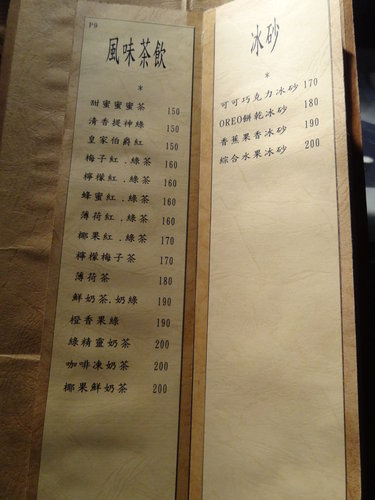 P9
風味茶飲
*
甜蜜蜜蜜茶 150
清香提神綠 150
皇家伯爵紅 150
梅子紅.綠茶 160
檸檬紅.綠茶 160
蜂蜜紅.綠茶 160
薄荷紅.綠茶 160
椰果紅.綠茶 170
檸檬梅子茶 170
薄荷茶 180
鮮奶茶.奶綠 190
橙香果綠 190
綠精靈奶茶 200
咖啡凍奶茶 200
椰果鮮奶茶 200
冰砂
*
可可巧克力冰砂 170
OREO餅乾冰砂 180
香蕉果香冰砂 190
綜合水果冰砂 200